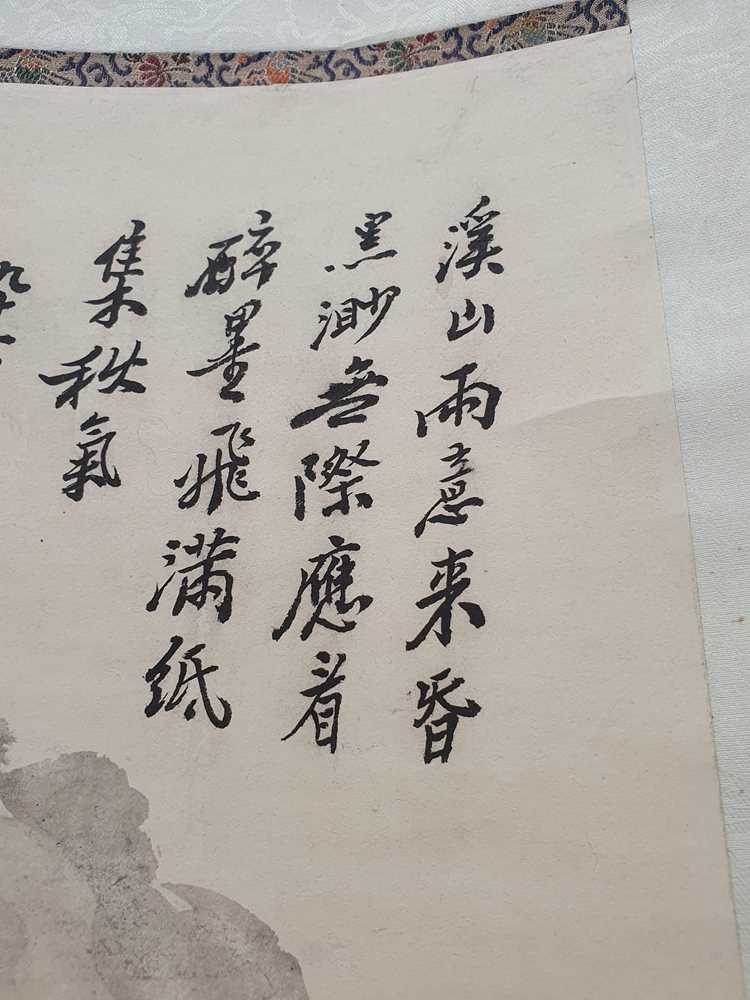 溪山雨意来昏
黑渺無際應着
醉墨飛满纸
集秋氣